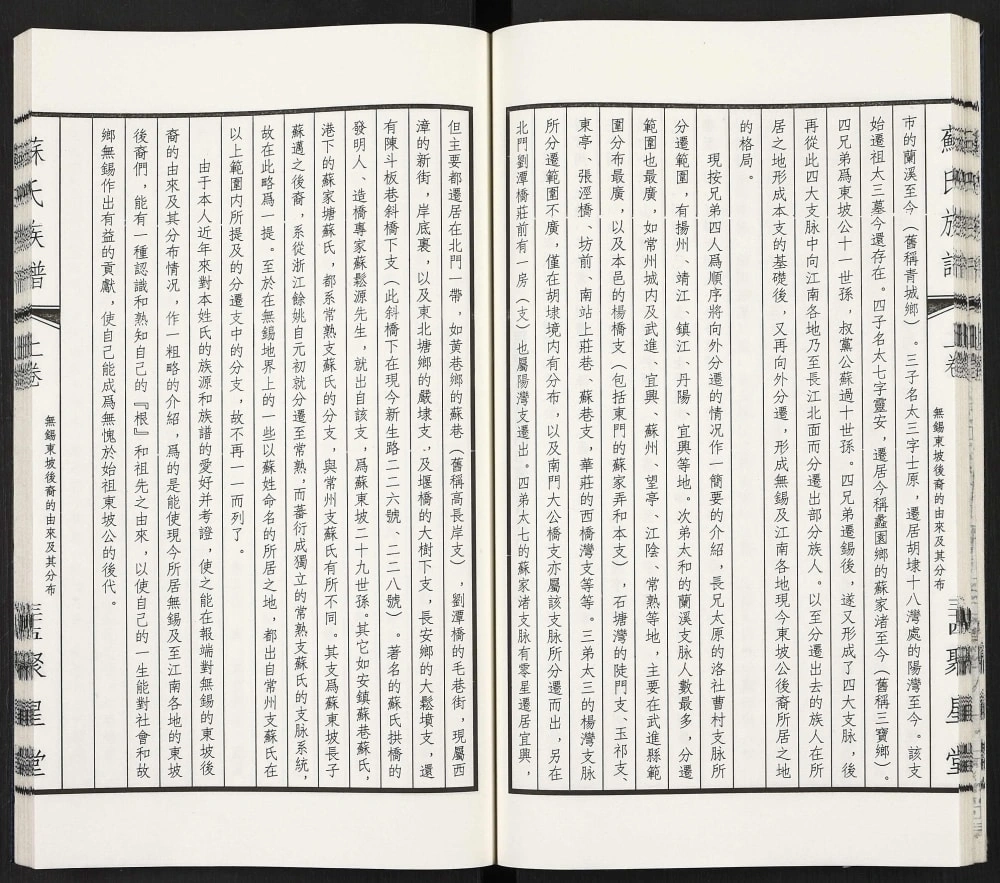 蘇氏族譜
上卷
無錫東坡後裔的由來及其分布
聚星堂
市的蘭溪至今（舊稱青城鄉）。三子名太三字士原，遷居胡埭十八灣處的陽灣至今。該支
始遷祖太三墓今還存在。四子名太七字靈安，遷居今稱蠡園鄉的蘇家渚至今（舊稱三寶鄉）。
四兄弟爲東坡公十一世孫，叔黨公蘇過十世孫。四兄弟遷錫後，遂又形成了四大支脈，後
再從此四大支脈中向江南各地乃至長江北面而分遷出部分族人。以至分遷出去的族人在所
居之地形成本支的基礎後，又再向外分遷，形成無錫及江南各地現今東坡公後裔所居之地
的格局。
現按兄弟四人爲順序將向外分遷的情况作一簡要的介紹，長兄太原的洛社曹村支脈所
分遷範圍，有揚州、靖江、鎮江、丹陽、宜興等地。次弟太和的蘭溪支脈人數最多，分遷
範圍也最廣，如常州城内及武進、宜興、蘇州、望亭、江陰、常熟等地，主要在武進縣範
圍分布最廣，以及本邑的楊橋支（包括東門的蘇家弄和本支），石塘灣的陡門支、玉祁支、
東亭、張涇橋、坊前、南站上莊巷、蘇巷支，華莊的西橋灣支等等。三弟太三的楊灣支脈
所分遷範圍不廣，僅在胡埭境内有分布，以及南門大公橋支亦屬該支脈所分遷而出，另在
北門劉潭橋莊前有一房（支）也屬陽灣支遷出。四弟太七的蘇家渚支脈有零星遷居宜興，
但主要都遷居在北門一帶，如黄巷鄉的蘇巷（舊稱高長岸支），劉潭橋的毛巷街，現屬西
漳的新街，岸底裏，以及東北塘鄉的嚴埭支，及堰橋的大樹下支，長安鄉的大鬆墳支，還
有陳斗板巷斜橋下支（此斜橋下在現今新生路二二六號、二二八號）。著名的蘇氏拱橋的
發明人、造橋專家蘇鬆源先生，就出自該支，爲蘇東坡二十九世孫。其它如安鎮蘇巷蘇氏，
港下的蘇家塘蘇氏，都系常熟支蘇氏的分支，與常州支蘇氏有所不同。其支爲蘇東坡長子
蘇邁之後裔，系從浙江餘姚自元初就分遷至常熟，而蕃衍成獨立的常熟支蘇氏的支脈系統，
故在此略爲一提。至於在無錫地界上的一些以蘇姓命名的所居之地，都出自常州支蘇氏在
以上範圍内所提及的分遷支中的分支，故不再一一而列了。
由于本人近年來對本姓氏的族源和族譜的愛好并考證，使之能在報端對無錫的東坡後
裔的由來及其分布情况，作一粗略的介紹，爲的是能使現今所居無錫及至江南各地的東坡
後裔們，能有一種認識和熟知自己的『根』和祖先之由來，以使自己的一生能對社會和故
鄉無錫作出有益的貢獻，使自己能成爲無愧於始祖東坡公的後代。
蘇氏族譜
上卷
無錫東坡後裔的由來及其分布
聚星堂